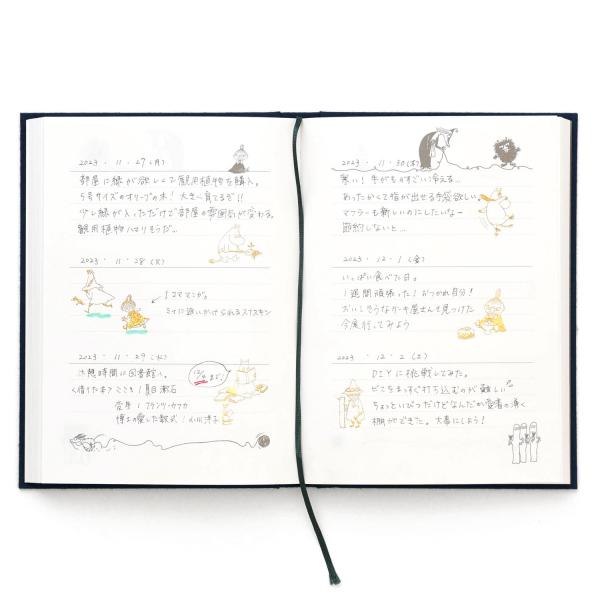 2023 . 11 . 27 (月)
部屋に緑が欲しくて観用植物を購入。
5号サイズのオリーブの木！大きく育てるぞ!!
少し緑が入っただけで部屋の雰囲気が変わる。
観用植物ハマりそうだ…
2023 . 11 . 28 (火)
1コママンガ。
ミイに追いかけられるスナスキン
2023 . 11 . 29 (水)
休憩時間に図書館へ。
12/14まで!
〈借りた本〉 こころ / 夏目漱石
変身 / フランツ・カフカ
博士の愛した数式 / 小川洋子
2023 . 11 . 30 (木)
寒い！手がものすごい冷える…
あったかくて指が出せる手袋欲しい。
マフラーも新しいのにしたいなー
節約しないと…
2023 . 12 . 1 (金)
いっぱい食べた日。
1週間頑張った！おつかれ自分！
おいしそうなケーキ屋さんも見つけた
今度行ってみよう
2023 . 12 . 2 (土)
DIYに挑戦してみた。
ビスをまっすぐ打ち込むのが難しい
ちょっといびつだけどなんだか愛着の湧く
棚ができた。大事にしよう！